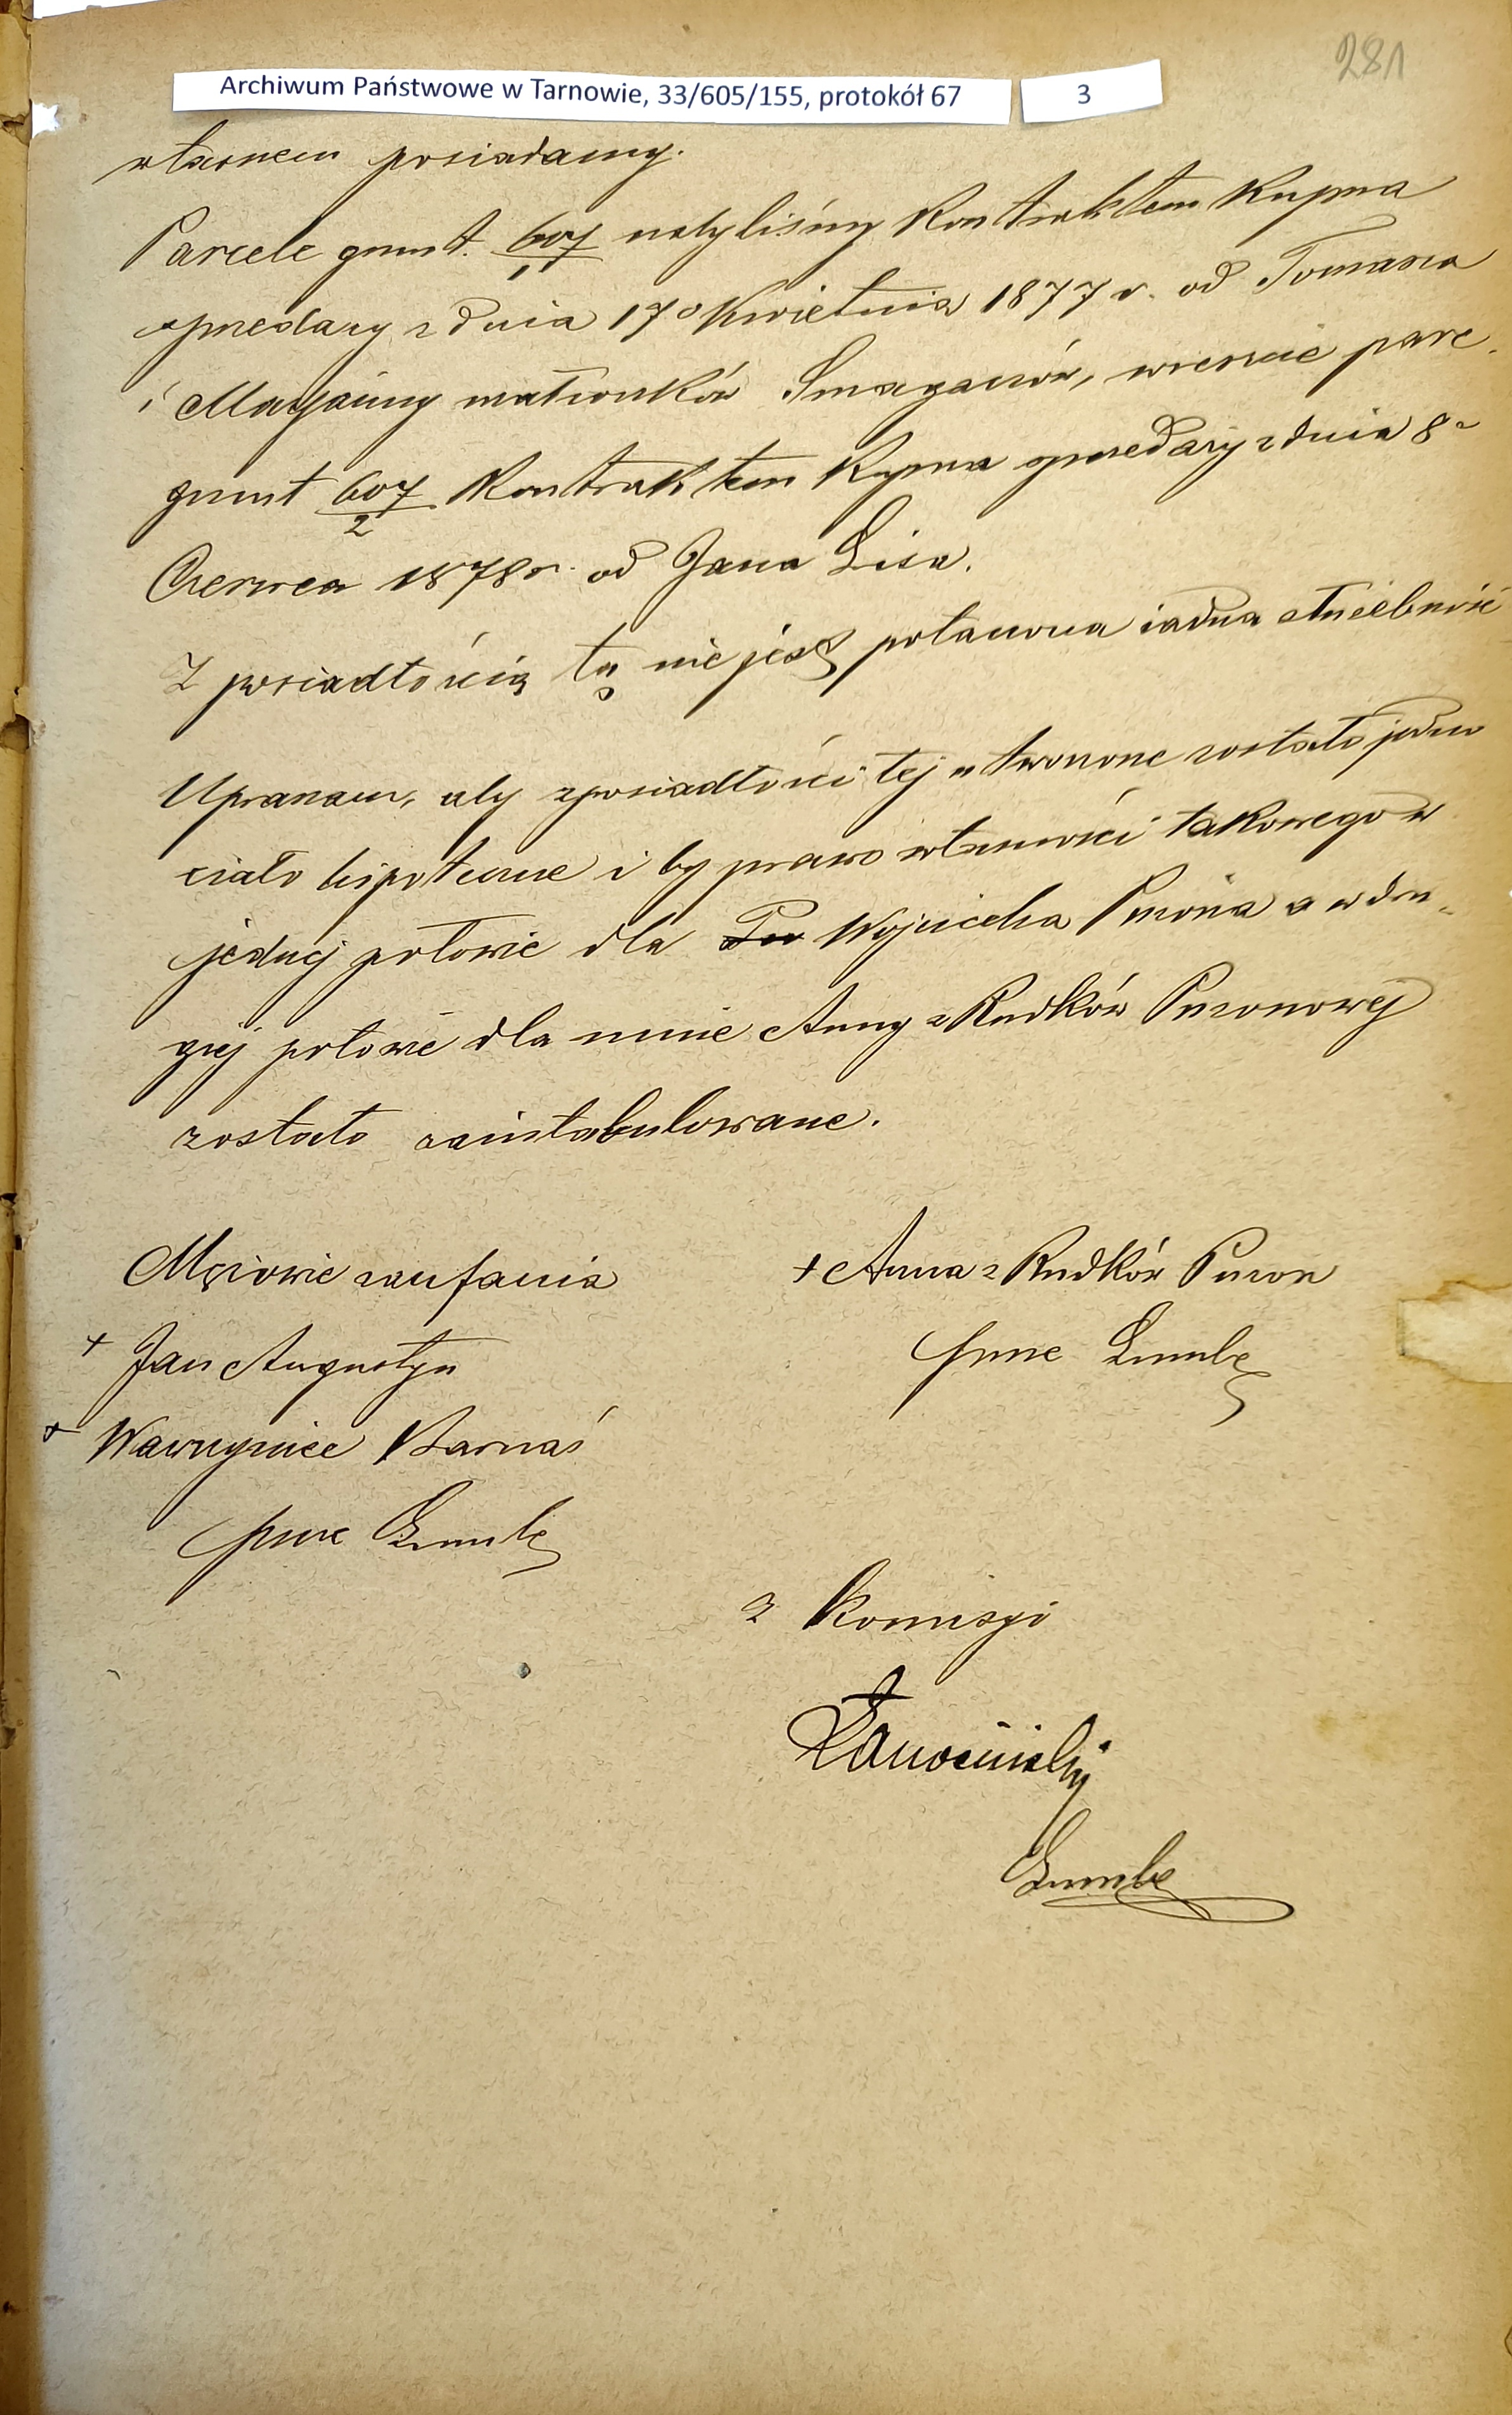 281
Archiwum Państwowe w Tarnowie, 33/605/155, protokół 67 3
własnem posiadamy.
Parcele grunt. 607/1 nabyliśmy Kontraktem Kupna
sprzedaży z dnia 17o Kwietnia 1877 r. od Tomasza
i Maryanny małżonków Smagaczów, wreszcie parc.
grunt 607/2 Kontraktem Kupna sprzedaży z dnia 8o
Czerwca 1878 r. od Jana Lisa.
Z posiadłością tą nie jest połączona żadna służebność
Upraszam, aby z posiadłości tej utworzone zostało jedno
ciało hipoteczne i by prawo własności takowego w
jednej połowie dla Wojciecha Puzona a w dru-
giej połowie dla mnie Anny z Rudków Puzonowej
zostało zaintabulowane.
Mężowie zaufania
+ Jan Augustyn
+ Wawrzyniec Barnaś
+ Anna z Rudków Puzon
z Komisyi